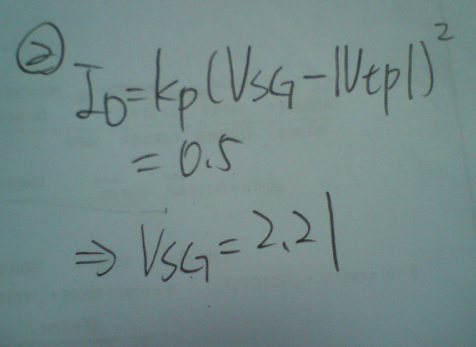 ② I_D=kp(VSG-|Vtp|)²
=0.5
⇒ VSG=2.21